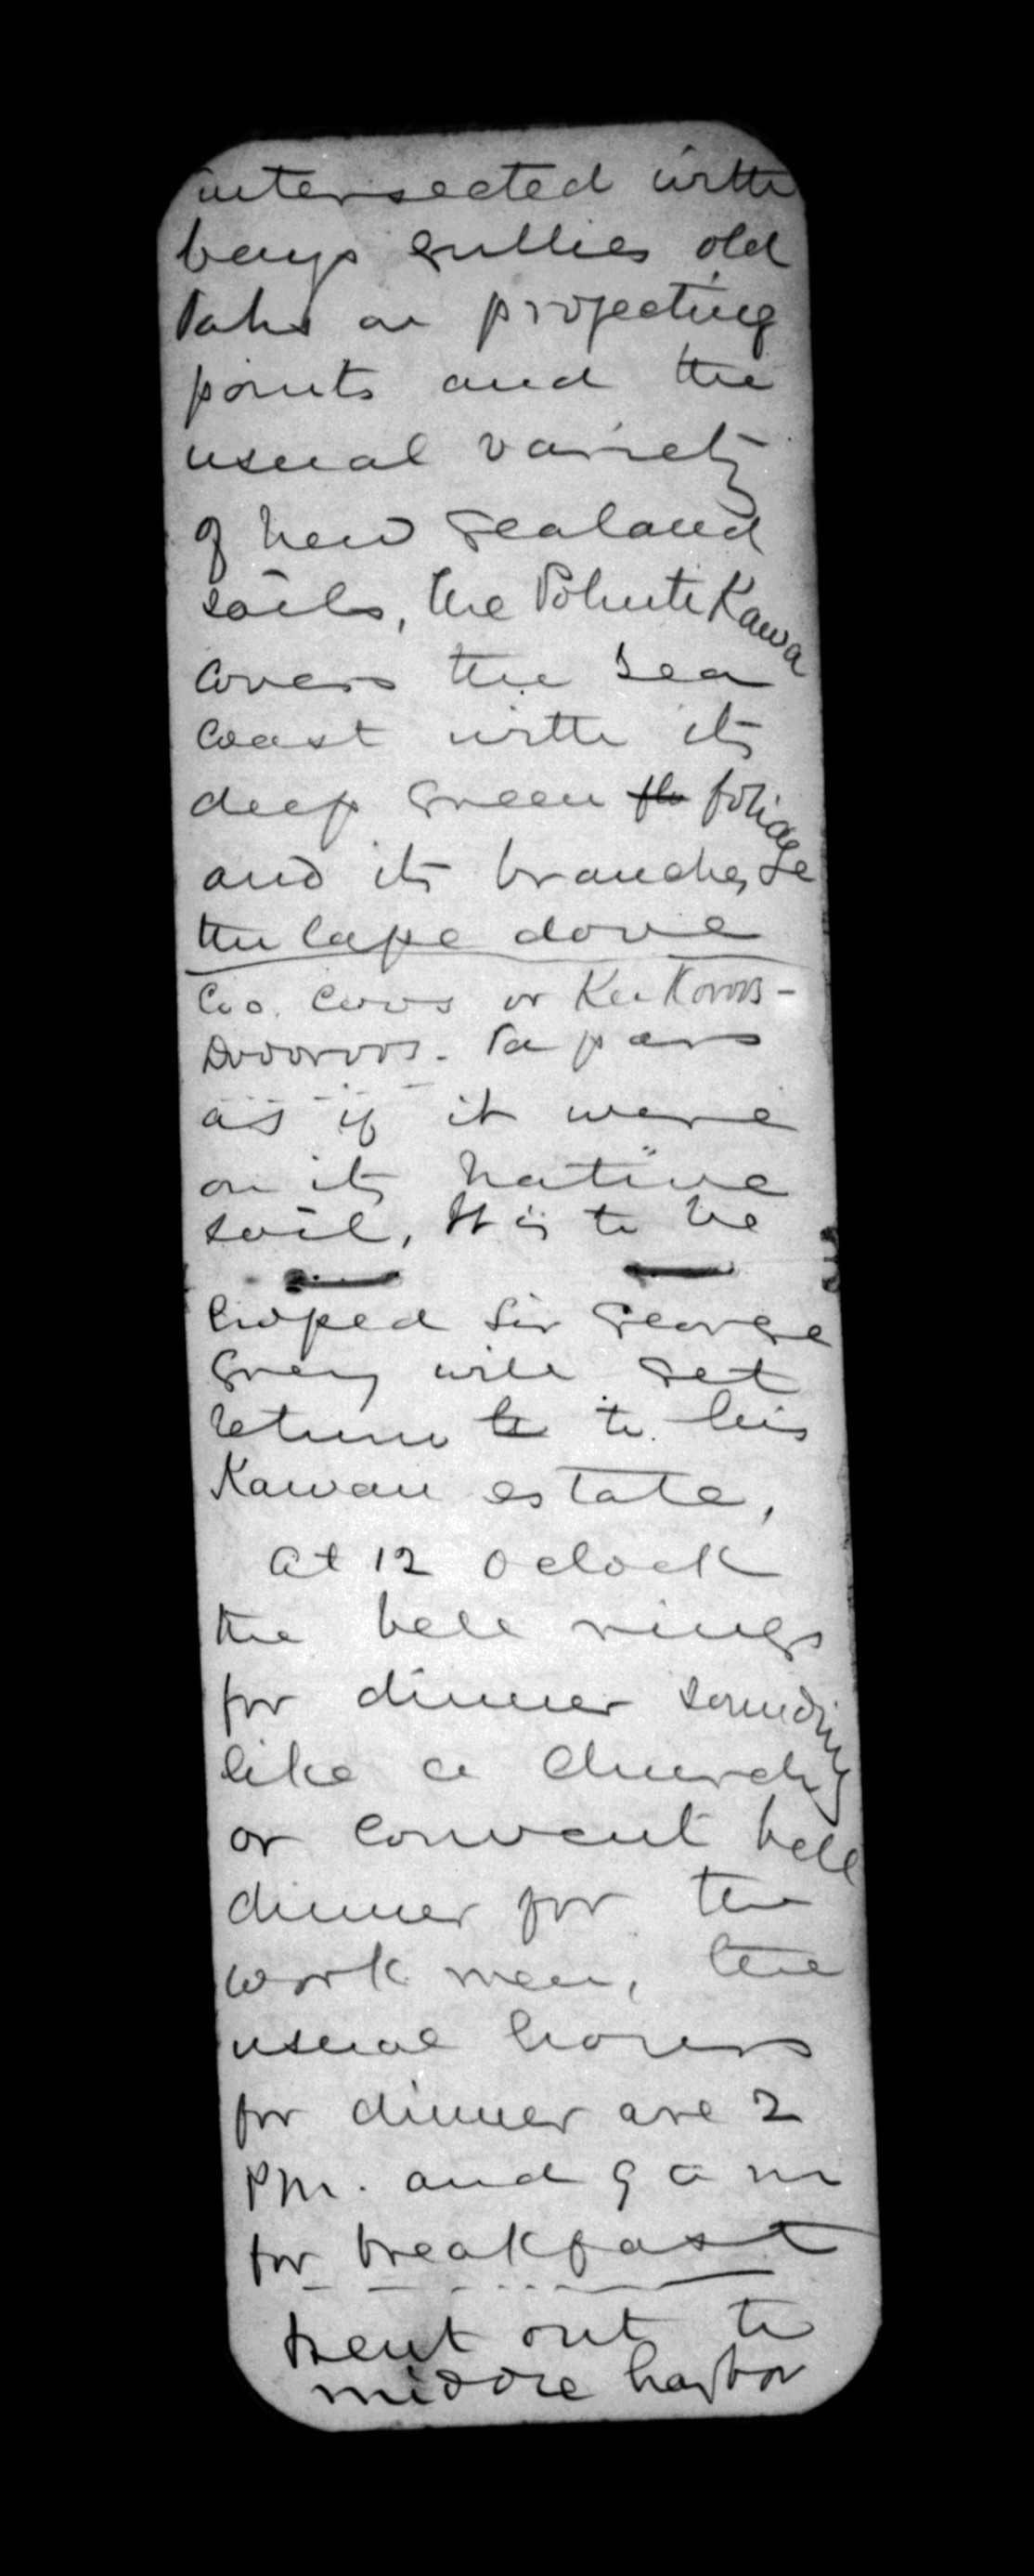 intersected with
bays gullies old
Pahs on projecting
points and the
usual variety
of New Zealand
soils, the PohutiKawa
covers the sea
coast with its
deep green foliage
and its branches &c
the Cape dove
Coo. Coos or KuKoroos-
as if it were
on its native
soil, It is to be
hoped Sir George
Grey will get
return to to his
Kawau estate,
at 12 oclock
the bell rings
for dinner sounding
like a church
or convent bell
dinner for the
work men, the
usual hours
for dinner are 2
PM. and 9 a m
for breakfast
went out to
middle harbor